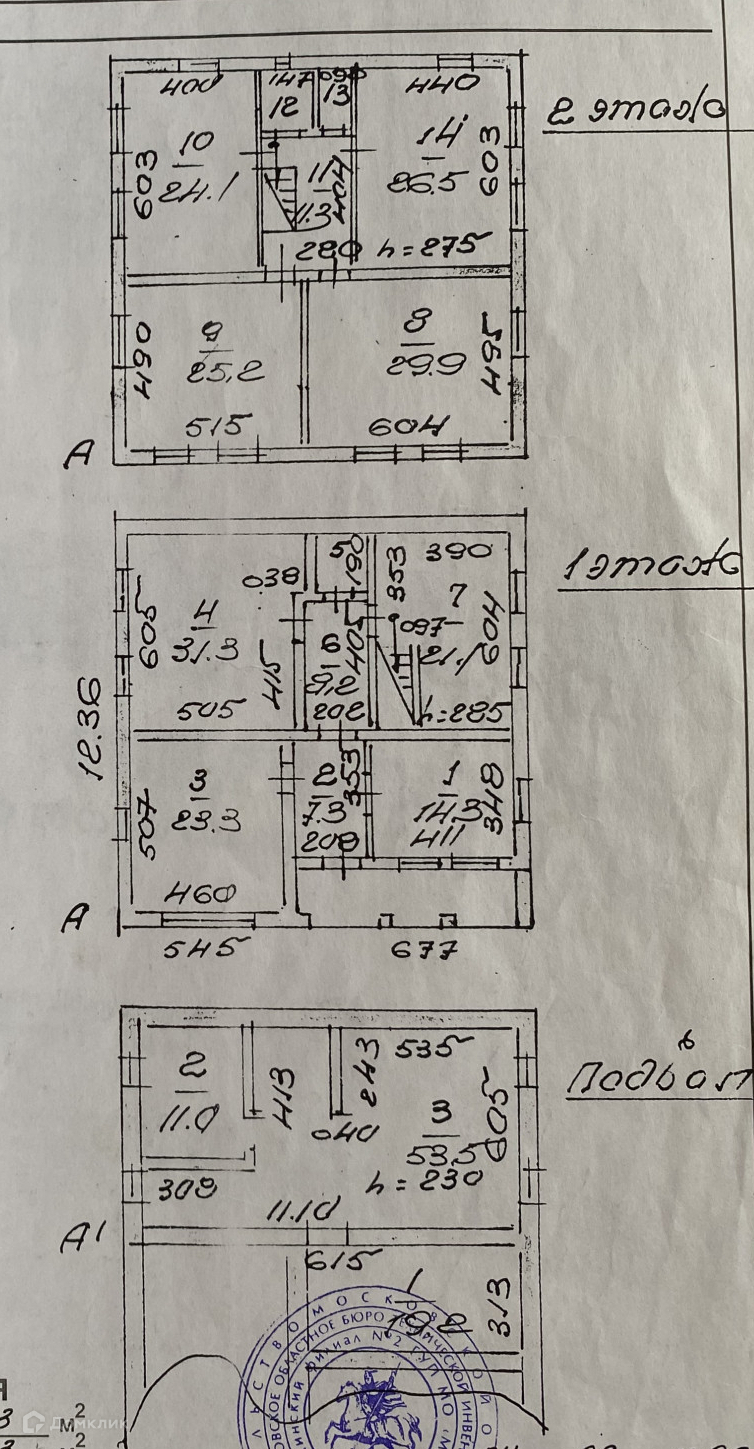 400
147
090
440
2 этаж
12
13
10
24.1
603
11
11.3
404
14
26.5
603
280
h=275
490
9
25.2
515
8
29.9
495
604
А
1 этаж
038
5
190
353
390
605
4
31.3
505
415
6
9.2
405
202
7
097
21.1
604
h=285
12.36
507
3
23.3
460
2
7.3
353
208
1
14.3
348
411
А
545
677
Подвал
2
11.0
413
243
535
3
53.5
605
040
308
h=230
11.10
А1
615
1
19.2
313
филиал №2 ГУП МО
м²
Домклик